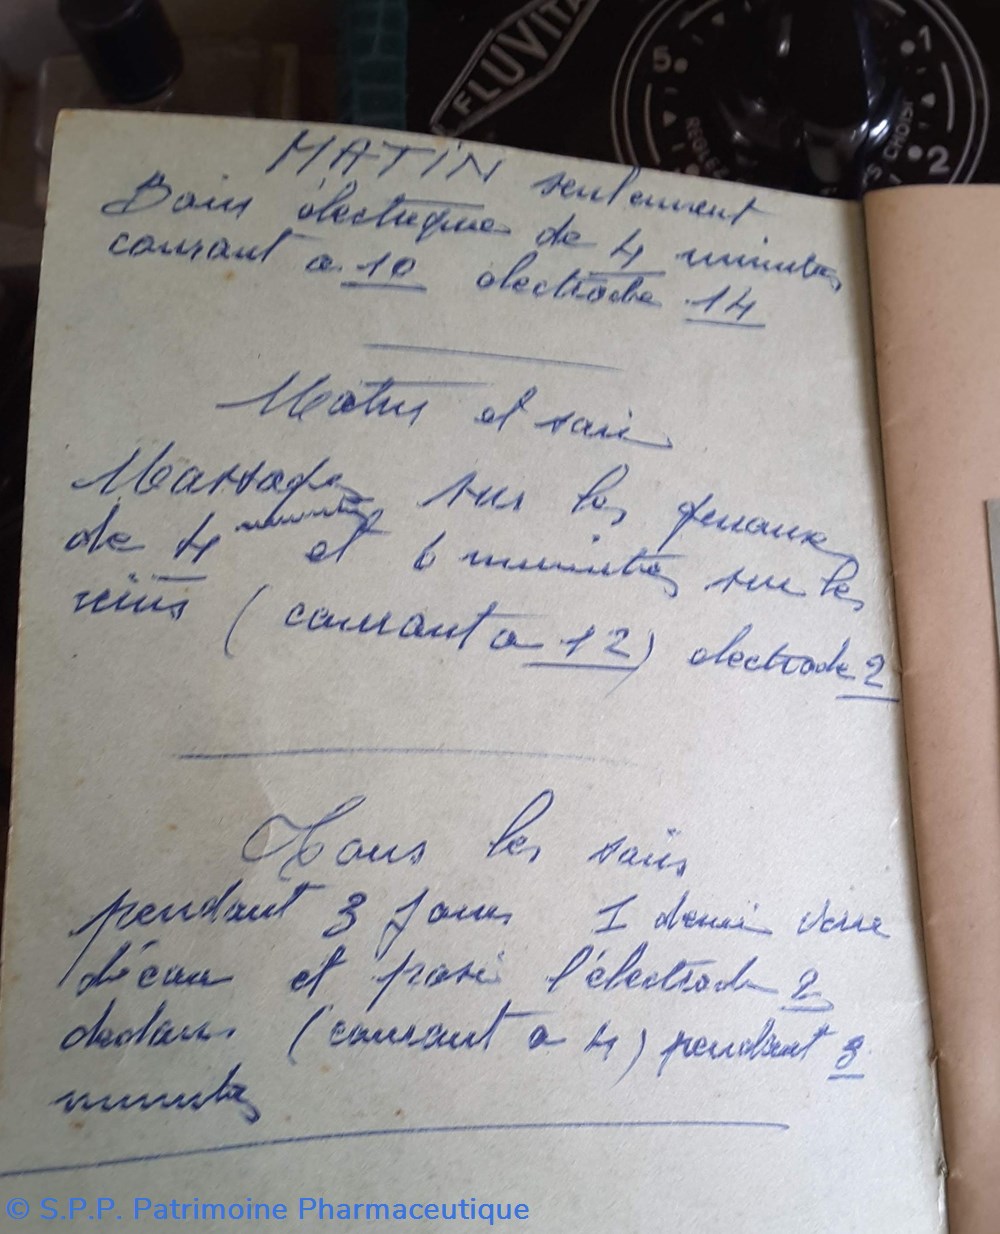 FLUVITA
5
1
2
REGLE
S CHOISI
MATIN seulement
Bain électrique de 4 minutes
courant a 10 electrode 14
Matin et soir
Massages sur les genoux
de 4 minutes et 6 minutes sur les
reins (courant a 12) electrode 2
Tous les soirs
pendant 3 jours 1 demi verre
d'eau et posé l'électrode 2
dedans (courant a 4) pendant 3
minutes
© S.P.P. Patrimoine Pharmaceutique